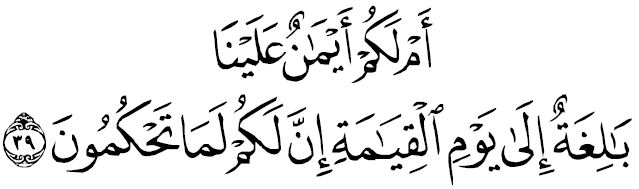 أَمْ لَكُمْ أَيْمَٰنٌ عَلَيْنَا
بَٰلِغَةٌ إِلَىٰ يَوْمِ ٱلْقِيَٰمَةِ إِنَّ لَكُمْ لَمَا تَحْكُمُونَ ٣٩